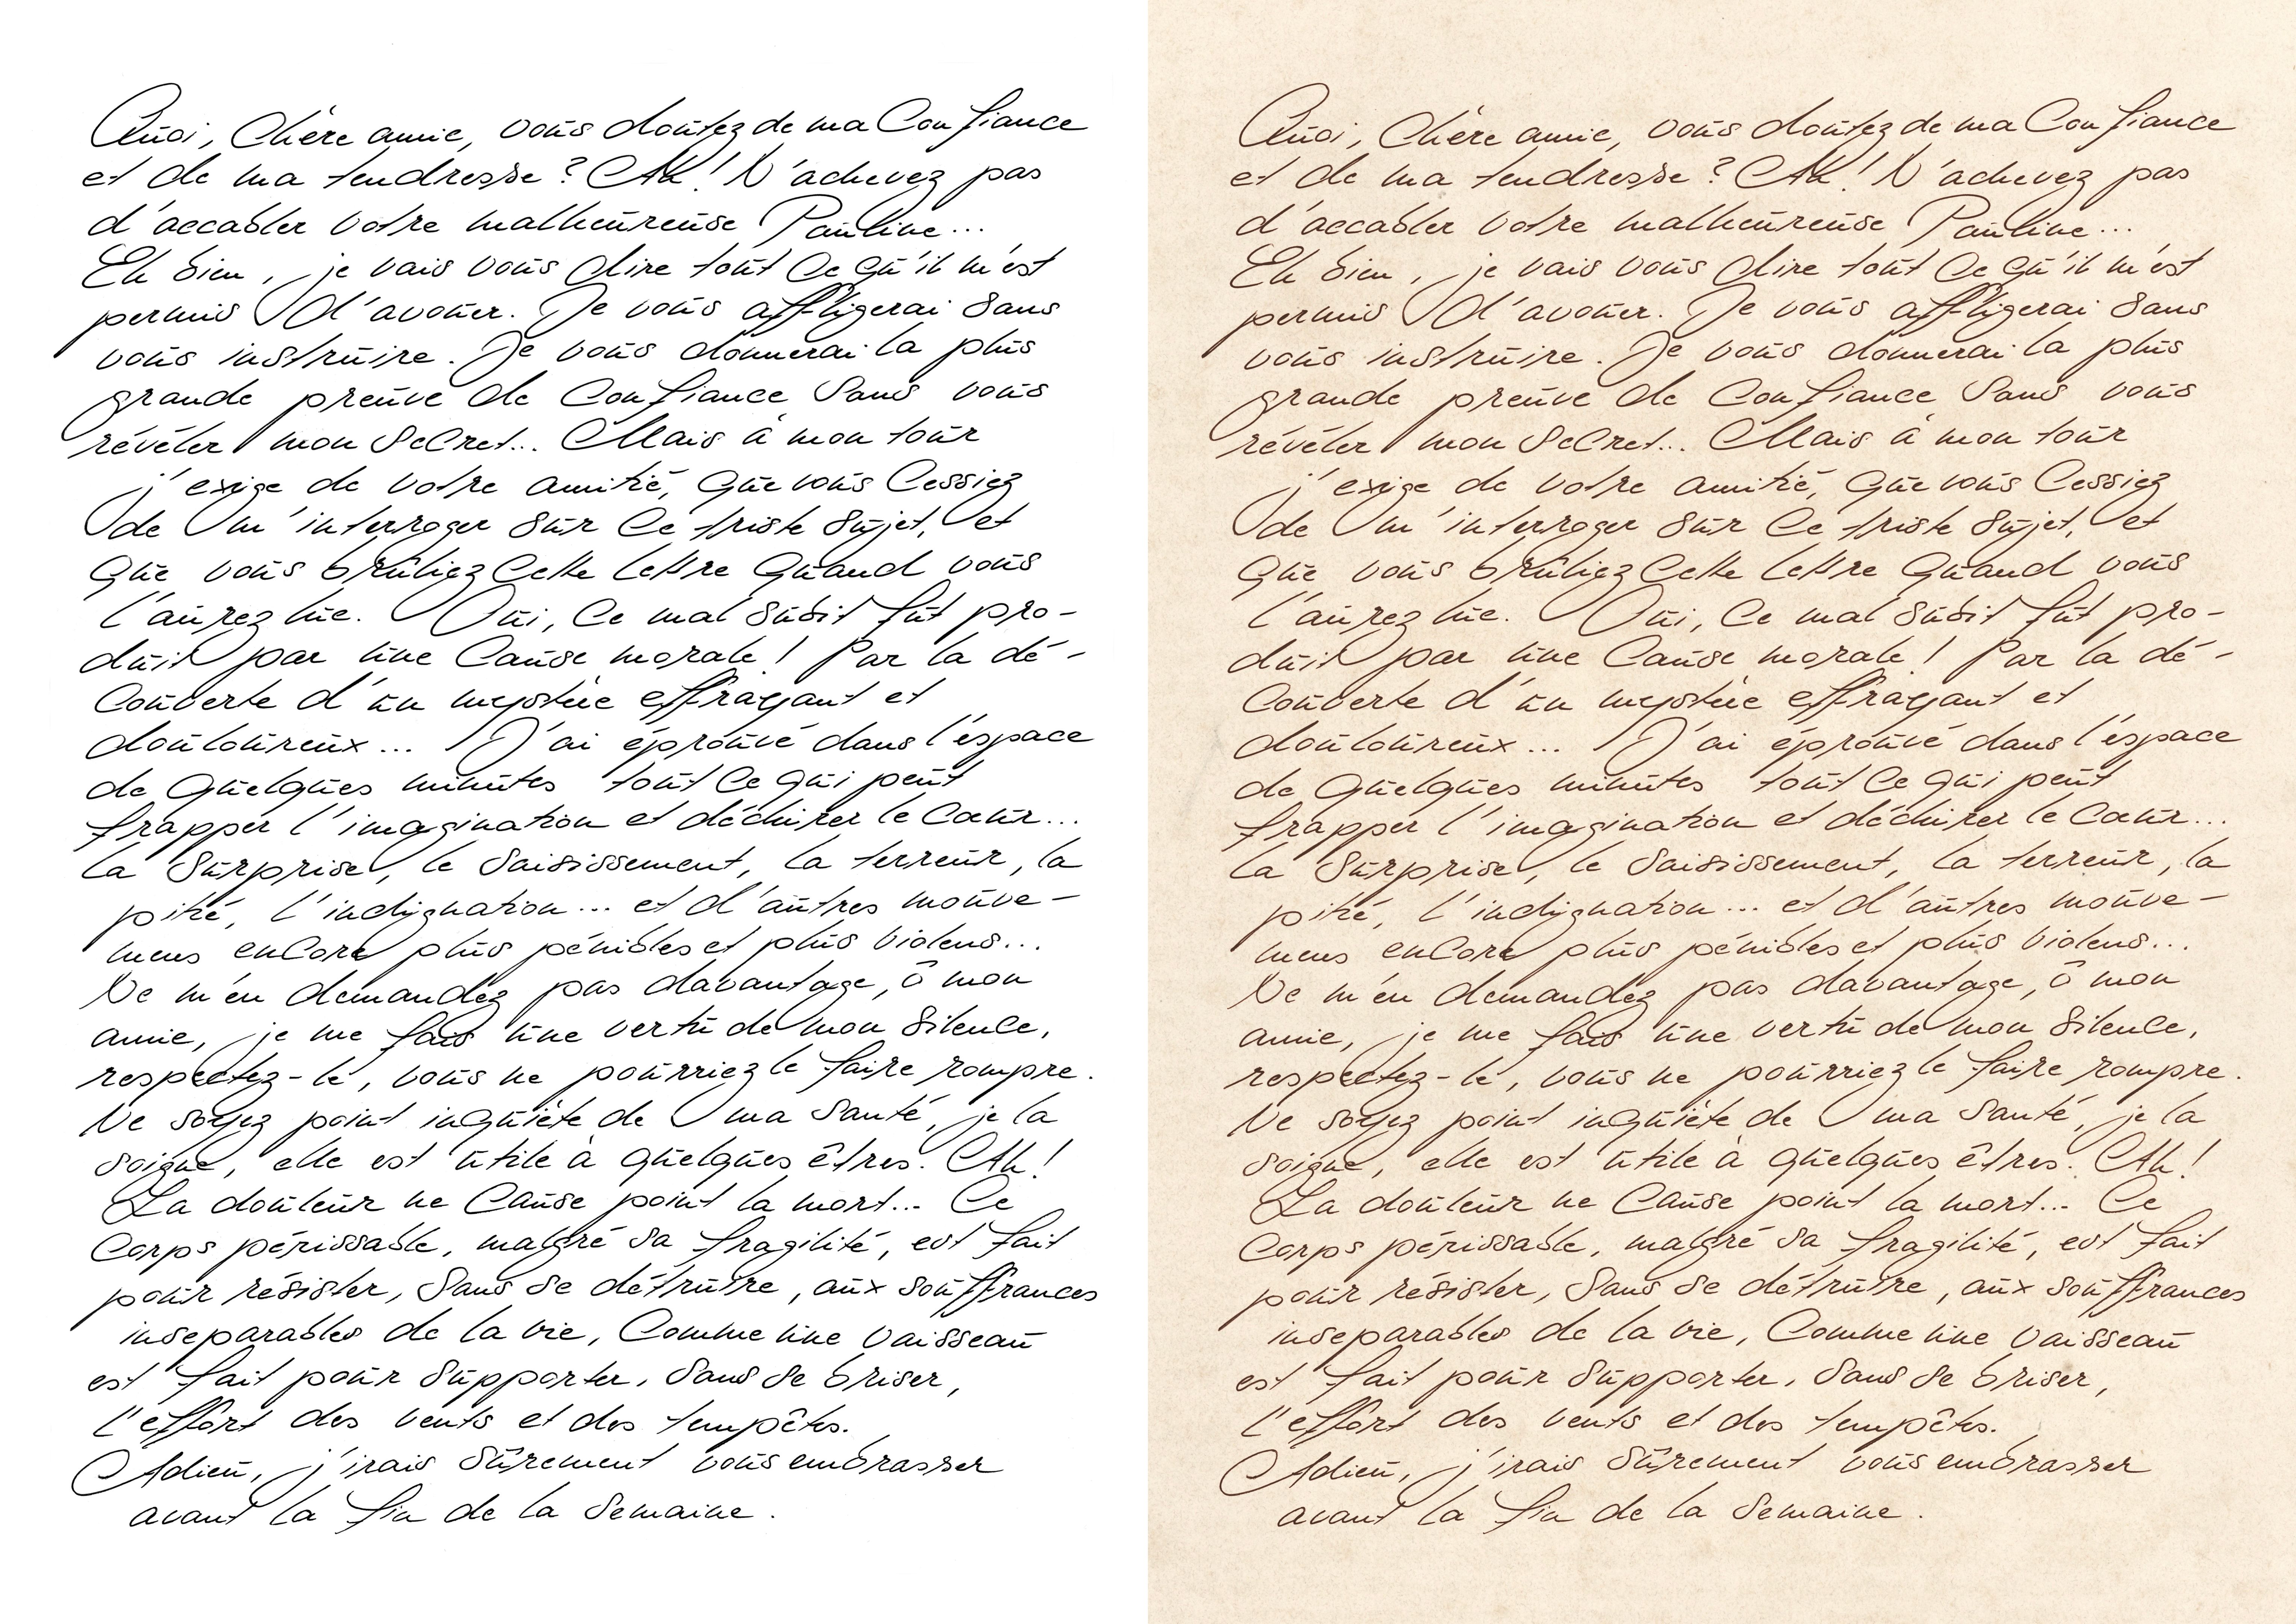 Quoi, Chère amie, vous doutez de ma Confiance
et de ma tendresse ? Ah ! N'achevez pas
d'accabler votre malheureuse Pauline...
Eh bien, je vais vous dire tout Ce qu'il m'est
permis d'avouer. Je vous affligerai sans
vous instruire. Je vous donnerai la plus
grande preuve de Confiance Sans vous
révéler mon SeCret... Mais à mon tour
j'exige de votre amitié, que vous Cessiez
de m'interroger sur Ce triste sujet, et
que vous brûliez Cette lettre quand vous
l'aurez lue. Oui, Ce mal subit fut pro-
duit par une Cause morale ! Par la dé-
Couverte d'un mystèie effrayant et
douloureux... J'ai éprouvé dans l'espace
de quelques minutes tout Ce qui peut
frapper l'imagination et déchirer le Cœur...
la Surprise, le Saisissement, la terreur, la
pitié, l'indignation... et d'autres mouve-
mens enCore plus pénibles et plus violens...
Ne m'en demandez pas davantage, ô mon
amie, je me fais une vertu de mon Silence,
respectez-le, vous ne pourriez le faire rompre.
Ne soyez point inquiète de ma Santé, je la
soigne, elle est utile à quelques êtres. Ah !
La douleur ne Cause point la mort... Ce
Corps périssable, malgré sa fragilité, est fait
pour résister, Sans se détruire, aux souffrances
inséparables de la vie, Comme une vaisseau
est fait pour Supporter, Sans se briser,
l'effort des vents et des tempêtes.
Adieu, j'irais sûrement vous embrasser
avant la fin de la Semaine.
Quoi, Chère amie, vous doutez de ma Confiance
et de ma tendresse ? Ah ! N'achevez pas
d'accabler votre malheureuse Pauline...
Eh bien, je vais vous dire tout Ce qu'il m'est
permis d'avouer. Je vous affligerai sans
vous instruire. Je vous donnerai la plus
grande preuve de Confiance Sans vous
révéler mon SeCret... Mais à mon tour
j'exige de votre amitié, que vous Cessiez
de m'interroger sur Ce triste sujet, et
que vous brûliez Cette lettre quand vous
l'aurez lue. Oui, Ce mal subit fut pro-
duit par une Cause morale ! Par la dé-
Couverte d'un mystèie effrayant et
douloureux... J'ai éprouvé dans l'espace
de quelques minutes tout Ce qui peut
frapper l'imagination et déchirer le Cœur...
la Surprise, le Saisissement, la terreur, la
pitié, l'indignation... et d'autres mouve-
mens enCore plus pénibles et plus violens...
Ne m'en demandez pas davantage, ô mon
amie, je me fais une vertu de mon Silence,
respectez-le, vous ne pourriez le faire rompre.
Ne soyez point inquiète de ma Santé, je la
soigne, elle est utile à quelques êtres. Ah !
La douleur ne Cause point la mort... Ce
Corps périssable, malgré sa fragilité, est fait
pour résister, Sans se détruire, aux souffrances
inséparables de la vie, Comme une vaisseau
est fait pour Supporter, Sans se briser,
l'effort des vents et des tempêtes.
Adieu, j'irais sûrement vous embrasser
avant la fin de la Semaine.